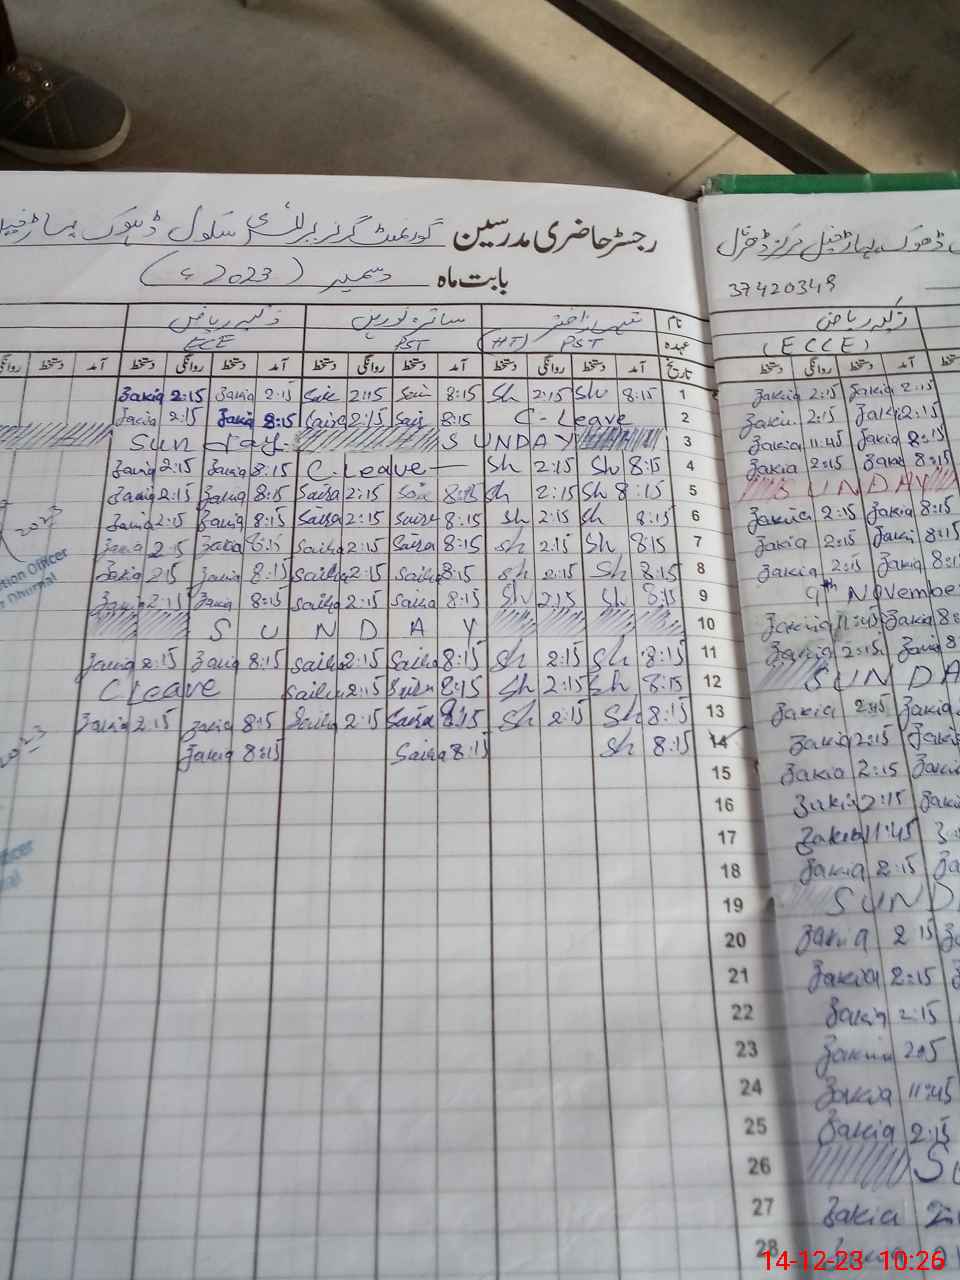 رجسٹر حاضری مدرسین گورنمنٹ گرلز پرائمری سکول ڈھوک
بابت ماہ دسمبر (2023ء)
37420349
نام شہناز اختر سائرہ نورین ذکیہ ریاض
ذکیہ ریاض
عہدہ PST (HT) PST ECE
(ECCE)
تاریخ آمد دستخط روانگی دستخط آمد دستخط روانگی دستخط آمد دستخط روانگی دستخط آمد دستخط
دستخط روانگی دستخط
Zakia 2:15 Zakia 2:15 2:15 8:15 Sh 2:15 Sh 8:15 1 Zakia 2:15 Zakia 2:15
Zakia 2:15 Zakia 8:15 Saira 2:15 8:15 C-Leave 2 Zakia 2:15 Zaki 2:15
Sunday SUNDAY 3 Zakia 11:45 Zakia 8:15
Zakia 2:15 Zakia 8:15 C.Leave Sh 2:15 Sh 8:15 4 Zakia 2:15 8:15
Zakia 2:15 Zakia 8:15 Saira 2:15 8:15 Sh 2:15 Sh 8:15 5 SUNDAY
Zakia 2:15 Zakia 8:15 Saira 2:15 Saira 8:15 Sh 2:15 Sh 8:15 6 Zakia 2:15 Zakia 8:15
Zakia 2:15 Zakia 8:15 Saira 2:15 Saira 8:15 Sh 2:15 Sh 8:15 7 Zakia 2:15 Zakia 8:15
Zakia 2:15 Zakia 8:15 Saira 2:15 Saira 8:15 Sh 2:15 Sh 8:15 8 Zakia 2:15 Zakia 8:15
Zakia 2:15 Zakia 8:15 Saira 2:15 Saira 8:15 Sh 2:15 Sh 8:15 9 9th November
SUNDAY 10 Zakia 11:45 Zakia
Zakia 2:15 Zakia 8:15 Saira 2:15 Saira 8:15 Sh 2:15 Sh 8:15 11 Zakia 2:15 Zakia
C Leave Saira 2:15 Saira 8:15 Sh 2:15 Sh 8:15 12 SUNDA
Zakia 2:15 Zakia 8:15 Saira 2:15 Saira 8:15 Sh 2:15 Sh 8:15 13 Zakia 2:15 Zakia
Zakia 8:15 Saira 8:15 Sh 8:15 14 Zakia 2:15 Zakia
15 Zakia 2:15 Zakia
16 Zakia 2:15 Zakia
17 Zakia 11:45
18 Zakia 2:15
19 SUND
20 Zakia 2:15
21 Zakia 2:15
22 Zakia 2:15
23 Zakia 2:15
24 Zakia 11:45
25 Zakia 2:15
26 Su
27 Zakia
28
2023
tion Officer
Dhurnal
2023
icer
14-12-23 10:26